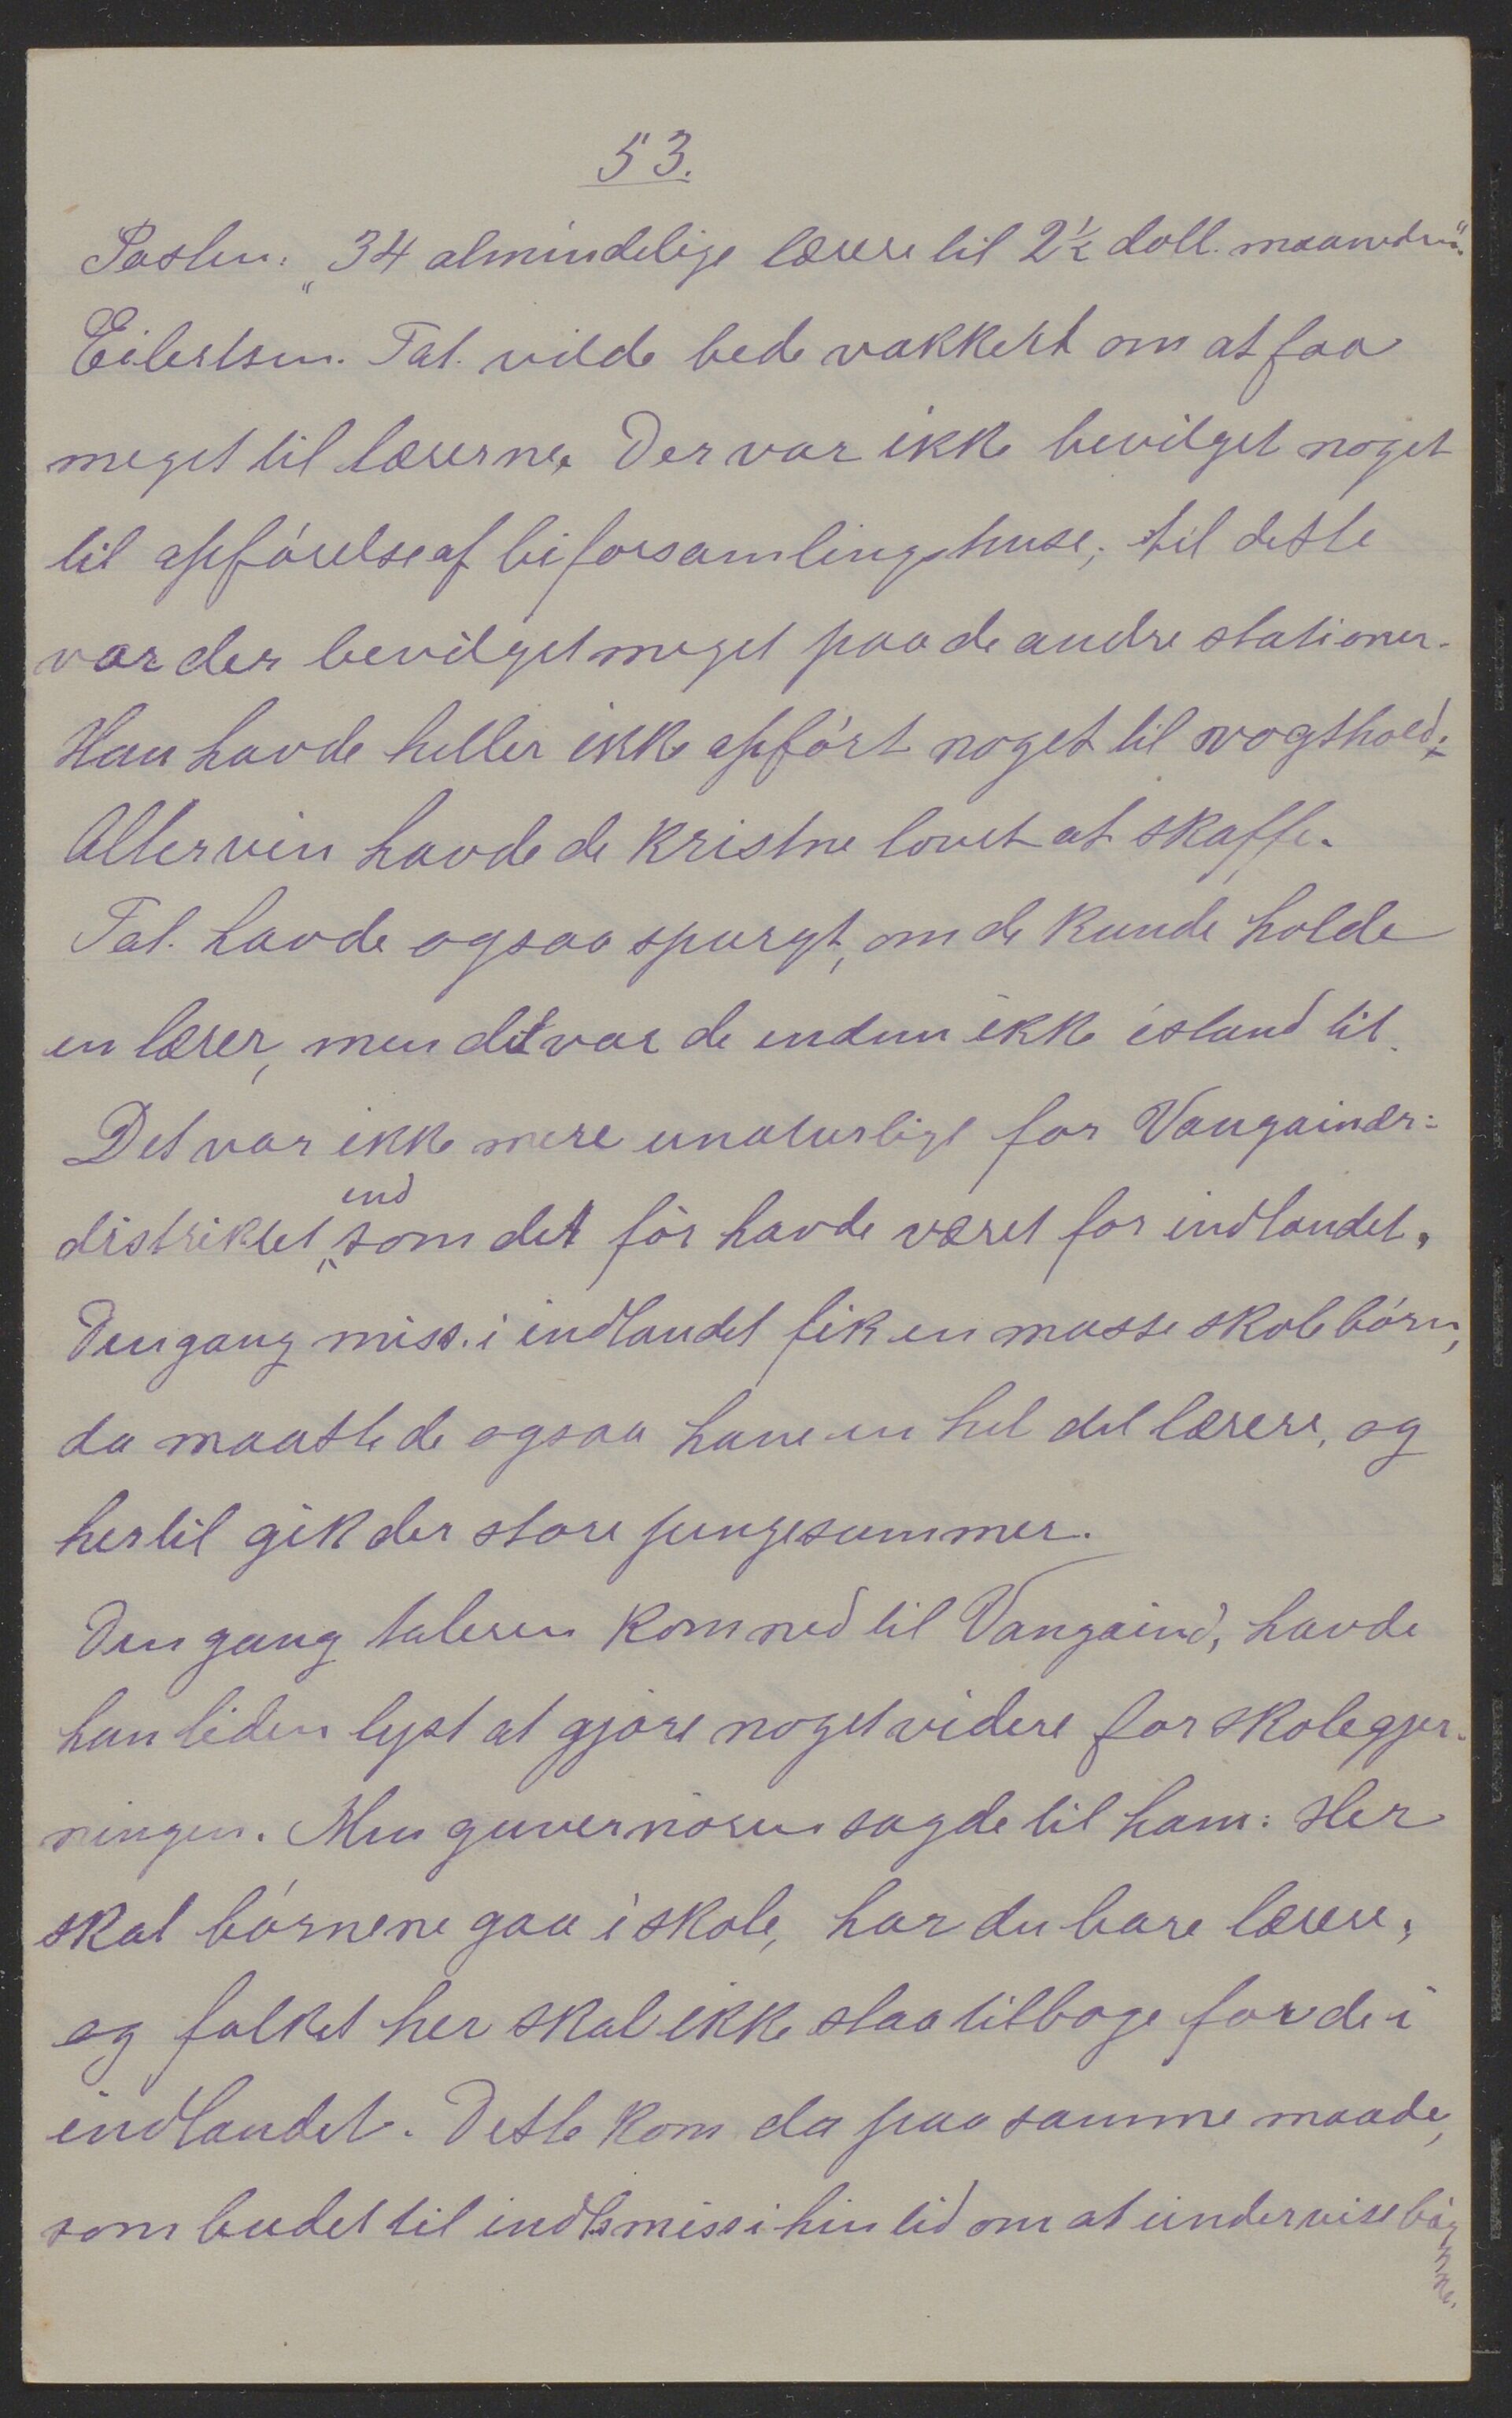 53.
Posten: "34 almindelige lærere til 2½ doll. maaneden".
Eilertsen. Tal. vilde bede vakkert om at faa
meget til lærerne. Der var ikke bevilget noget
til opførelse af biforsamlingshuse; til dette
var der bevilget meget paa de andre stationer.
Han havde heller ikke opført noget til vogthold.
Altervin havde de kristne lovet at skaffe.
Tal. havde ogsaa spurgt, om de kunde holde
en lærer, men det var de endnu ikke istand til.
Det var ikke mere unaturligt for Vangaindr-
distriktet end som det før havde været for indlandet.
Dengang miss. i indlandet fik en masse skolebørn,
da maatte de ogsaa have en hel del lærere, og
hertil gik der store pengesummer.
Den gang taleren kom ned til Vangaind, havde
han liden lyst at gjøre noget videre for skolegjer-
ningen. Men guvernøren sagde til ham: Her
skal børnene gaa i skole, har du bare lærere,
og folket her skal ikke staa tilbage for de i
indlandet. Dette kom da paa samme maade,
som budet til indlsmiss i hin tid om at undervise børnene.